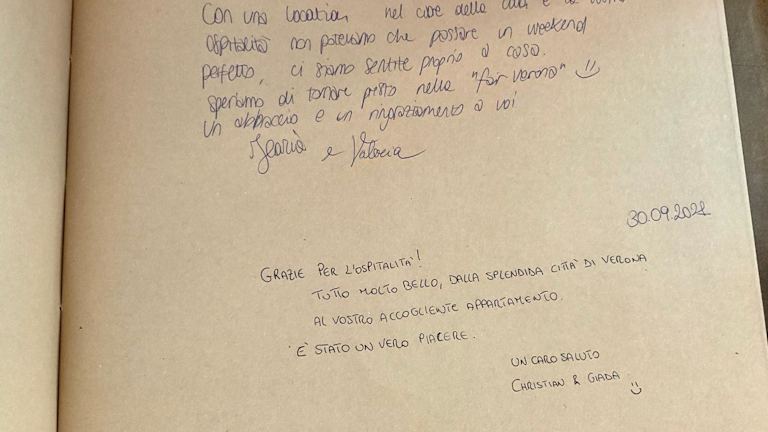 Con una location nel cuore della città e la vostra
ospitalità non potevamo che passare un weekend
perfetto, ci siamo sentite proprio a casa.
speriamo di tornare presto nella "for verona"
un abbraccio e un ringraziamento a voi
Ilaria e Valeria
30.09.2021
GRAZIE PER L'OSPITALITA'!
TUTTO MOLTO BELLO, DALLA SPLENDIDA CITTÀ DI VERONA
AL VOSTRO ACCOGLIENTE APPARTAMENTO.
E' STATO UN VERO PIACERE.
UN CARO SALUTO
CHRISTIAN & GIADA